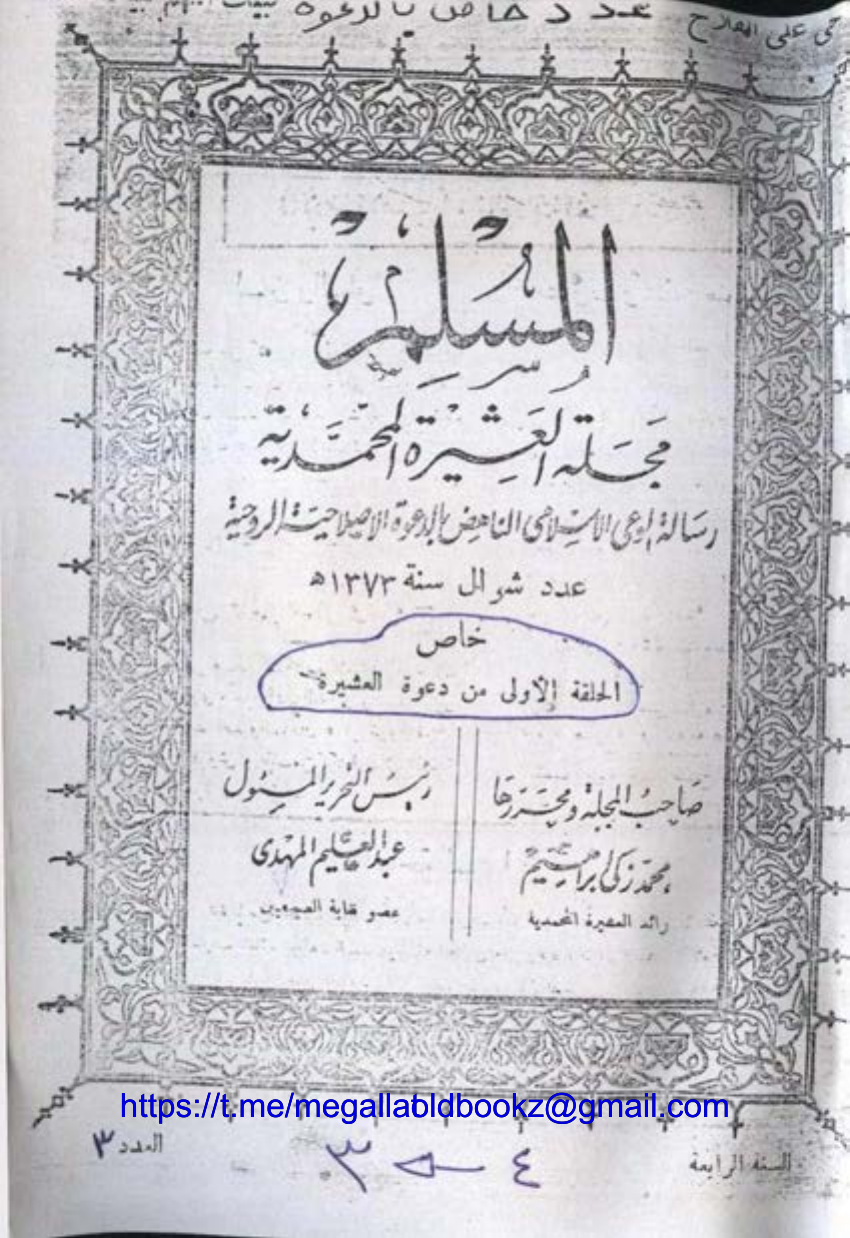 عدد خاص بالدعوة
المسلم
مجلة العشيرة المحمدية
رسالة الوعي الإسلامي الناهض بالدعوة الإصلاحية الروحية
عدد شوال سنة ١٣٧٣ھ
خاص
الحلقة الأولى من دعوة العشيرة
صاحب المجلة ومحررها
محمد زكي إبراهيم
رائد العشيرة المحمدية
رئيس التحرير المسئول
عبد العليم المهدى
عضو نقابة الصحفيين
https://t.me/megallatoldbookz@gmail.com
السنة الرابعة
٤ ــ ٣
العدد ٣